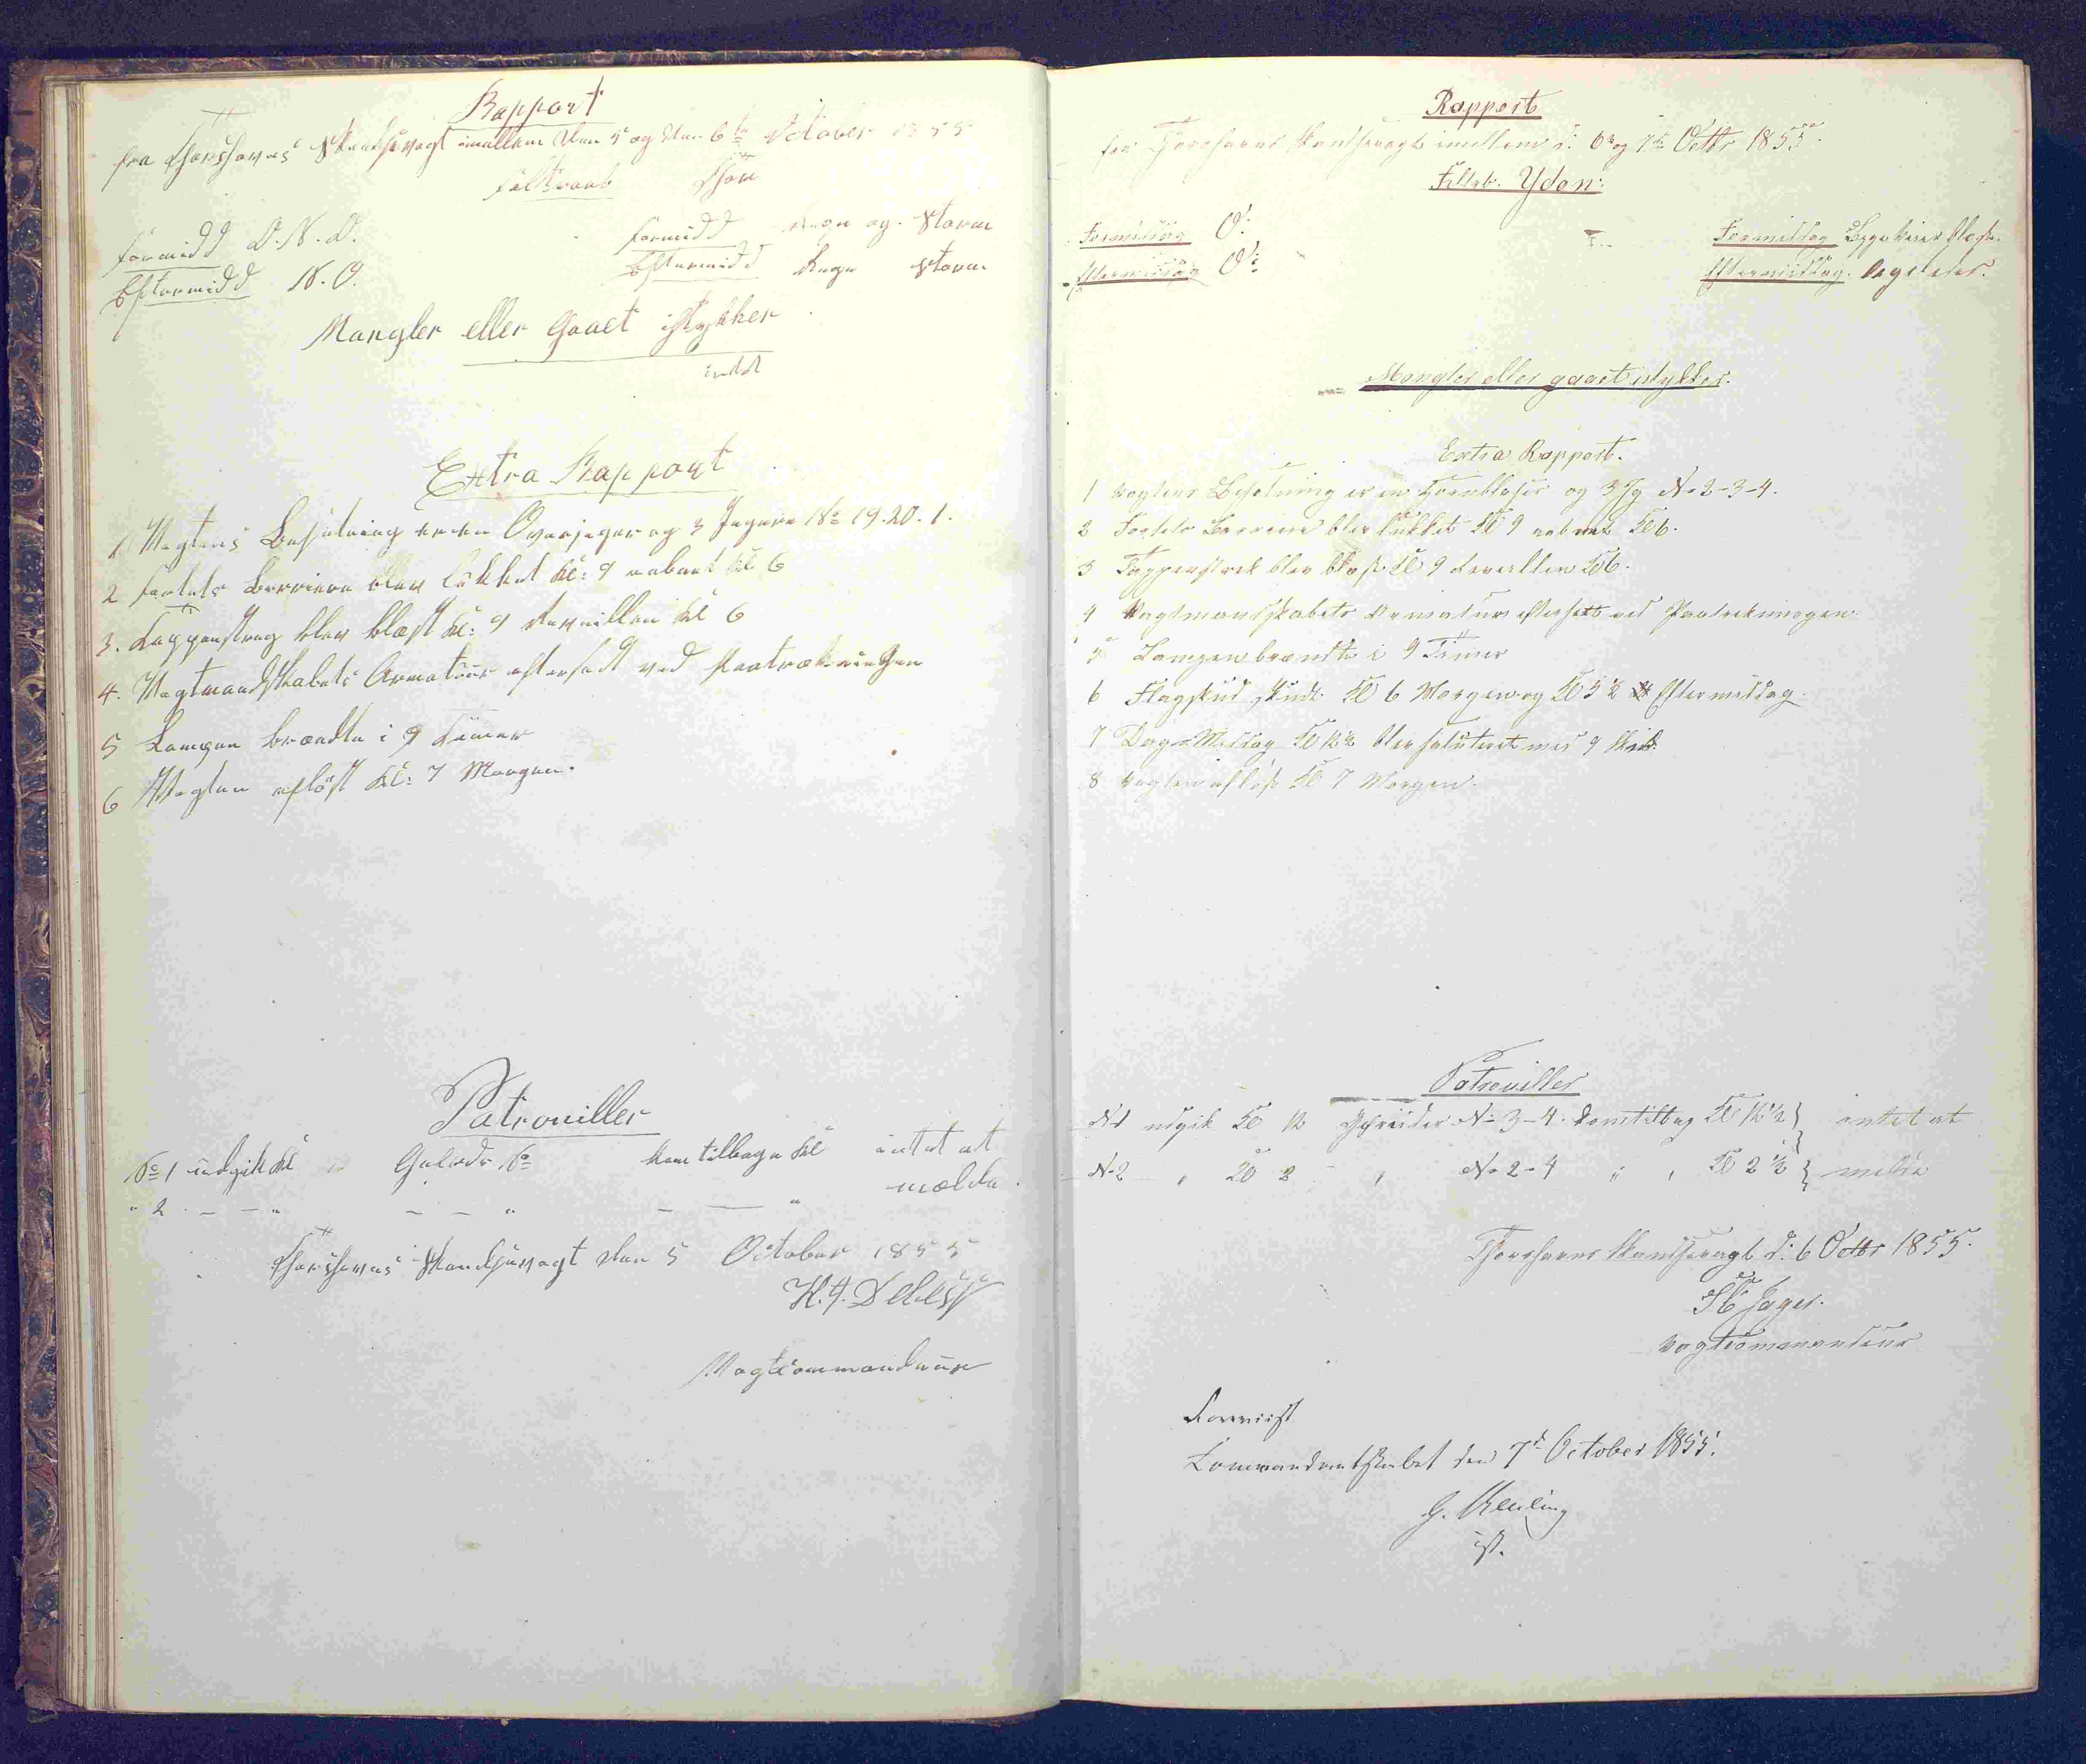 Rapport
fra Thorshavns Skandsevagt imellem den 5 og den 6te October 1855
Feltraab Thor
Formidd O.N.O. Formidd Regn og Storm
Eftermidd N.O. Eftermidd Regn Storm
Mangler eller Gaaet istykker
intet
Extra Rapport
1 Vagtens Besætning er en Overjeger og 3 Jegere No 19.20.1.
2 Fortets Barriere blev lukket Kl: 9 aabnet Kl 6
3. Tappenstreg blev blæst Kl: 9 Reveillen Kl 6
4. Vagtmandskabets Armatuur efterseet ved Paatrækningen
5 Lampen brændte i 9 Timer
6 Vagten afløst Kl: 7 Morgen.
Patrouiller
No 1 udgik Kl " Geleder No kom tilbage Kl intet at
" 2 - - - " - - " - - " melde
Thorshavns Skandsevagt den 5 October 1855
H.J. Debess
Vagtcommandeur
Rapport
fra Thorshavns Skandsevagt imellem d: 6te og 7de Octbr 1855
Feltrb. Ydon:
Formiddag O: Formiddag Bygeveir blæst.
Eftermiddag O: Eftermiddag
Mangler eller gaaet istykker.
Extra Rapport.
1 Vagtens Besætning er en Hornblæser og 3 Jg No 2-3-4.
2 Fortets Barriere blev lukket Kl 9 aabnet Kl 6.
3 Tappenstrek blev blæst Kl 9 Reveillen Kl 6.
4 Vagtmandskabets Armatur efterseet ved Paatrekningen
5 Lampen brændte i 9 Timer
6 Flagskud skudt Kl 6 Morgen og Kl 5 1/2 Eftermiddag.
7 Dags Middag Kl 12 1/2 blev saluteret med 9 Skud.
8 Vagten afløst Kl 7 Morgen.
Patrouiller
No 1 udgik Kl 12 No 3-4. kom tilbag Kl 12 1/2 } intet at
No 2 " Kl 2 " No 2-4 " " Kl 2 1/2 } melde
Thorshavns Skandsevagt d: 6 Octbr 1855.
Jager.
Vagtcommandeur
Forevist
Commandantskabet den 7de October 1855.